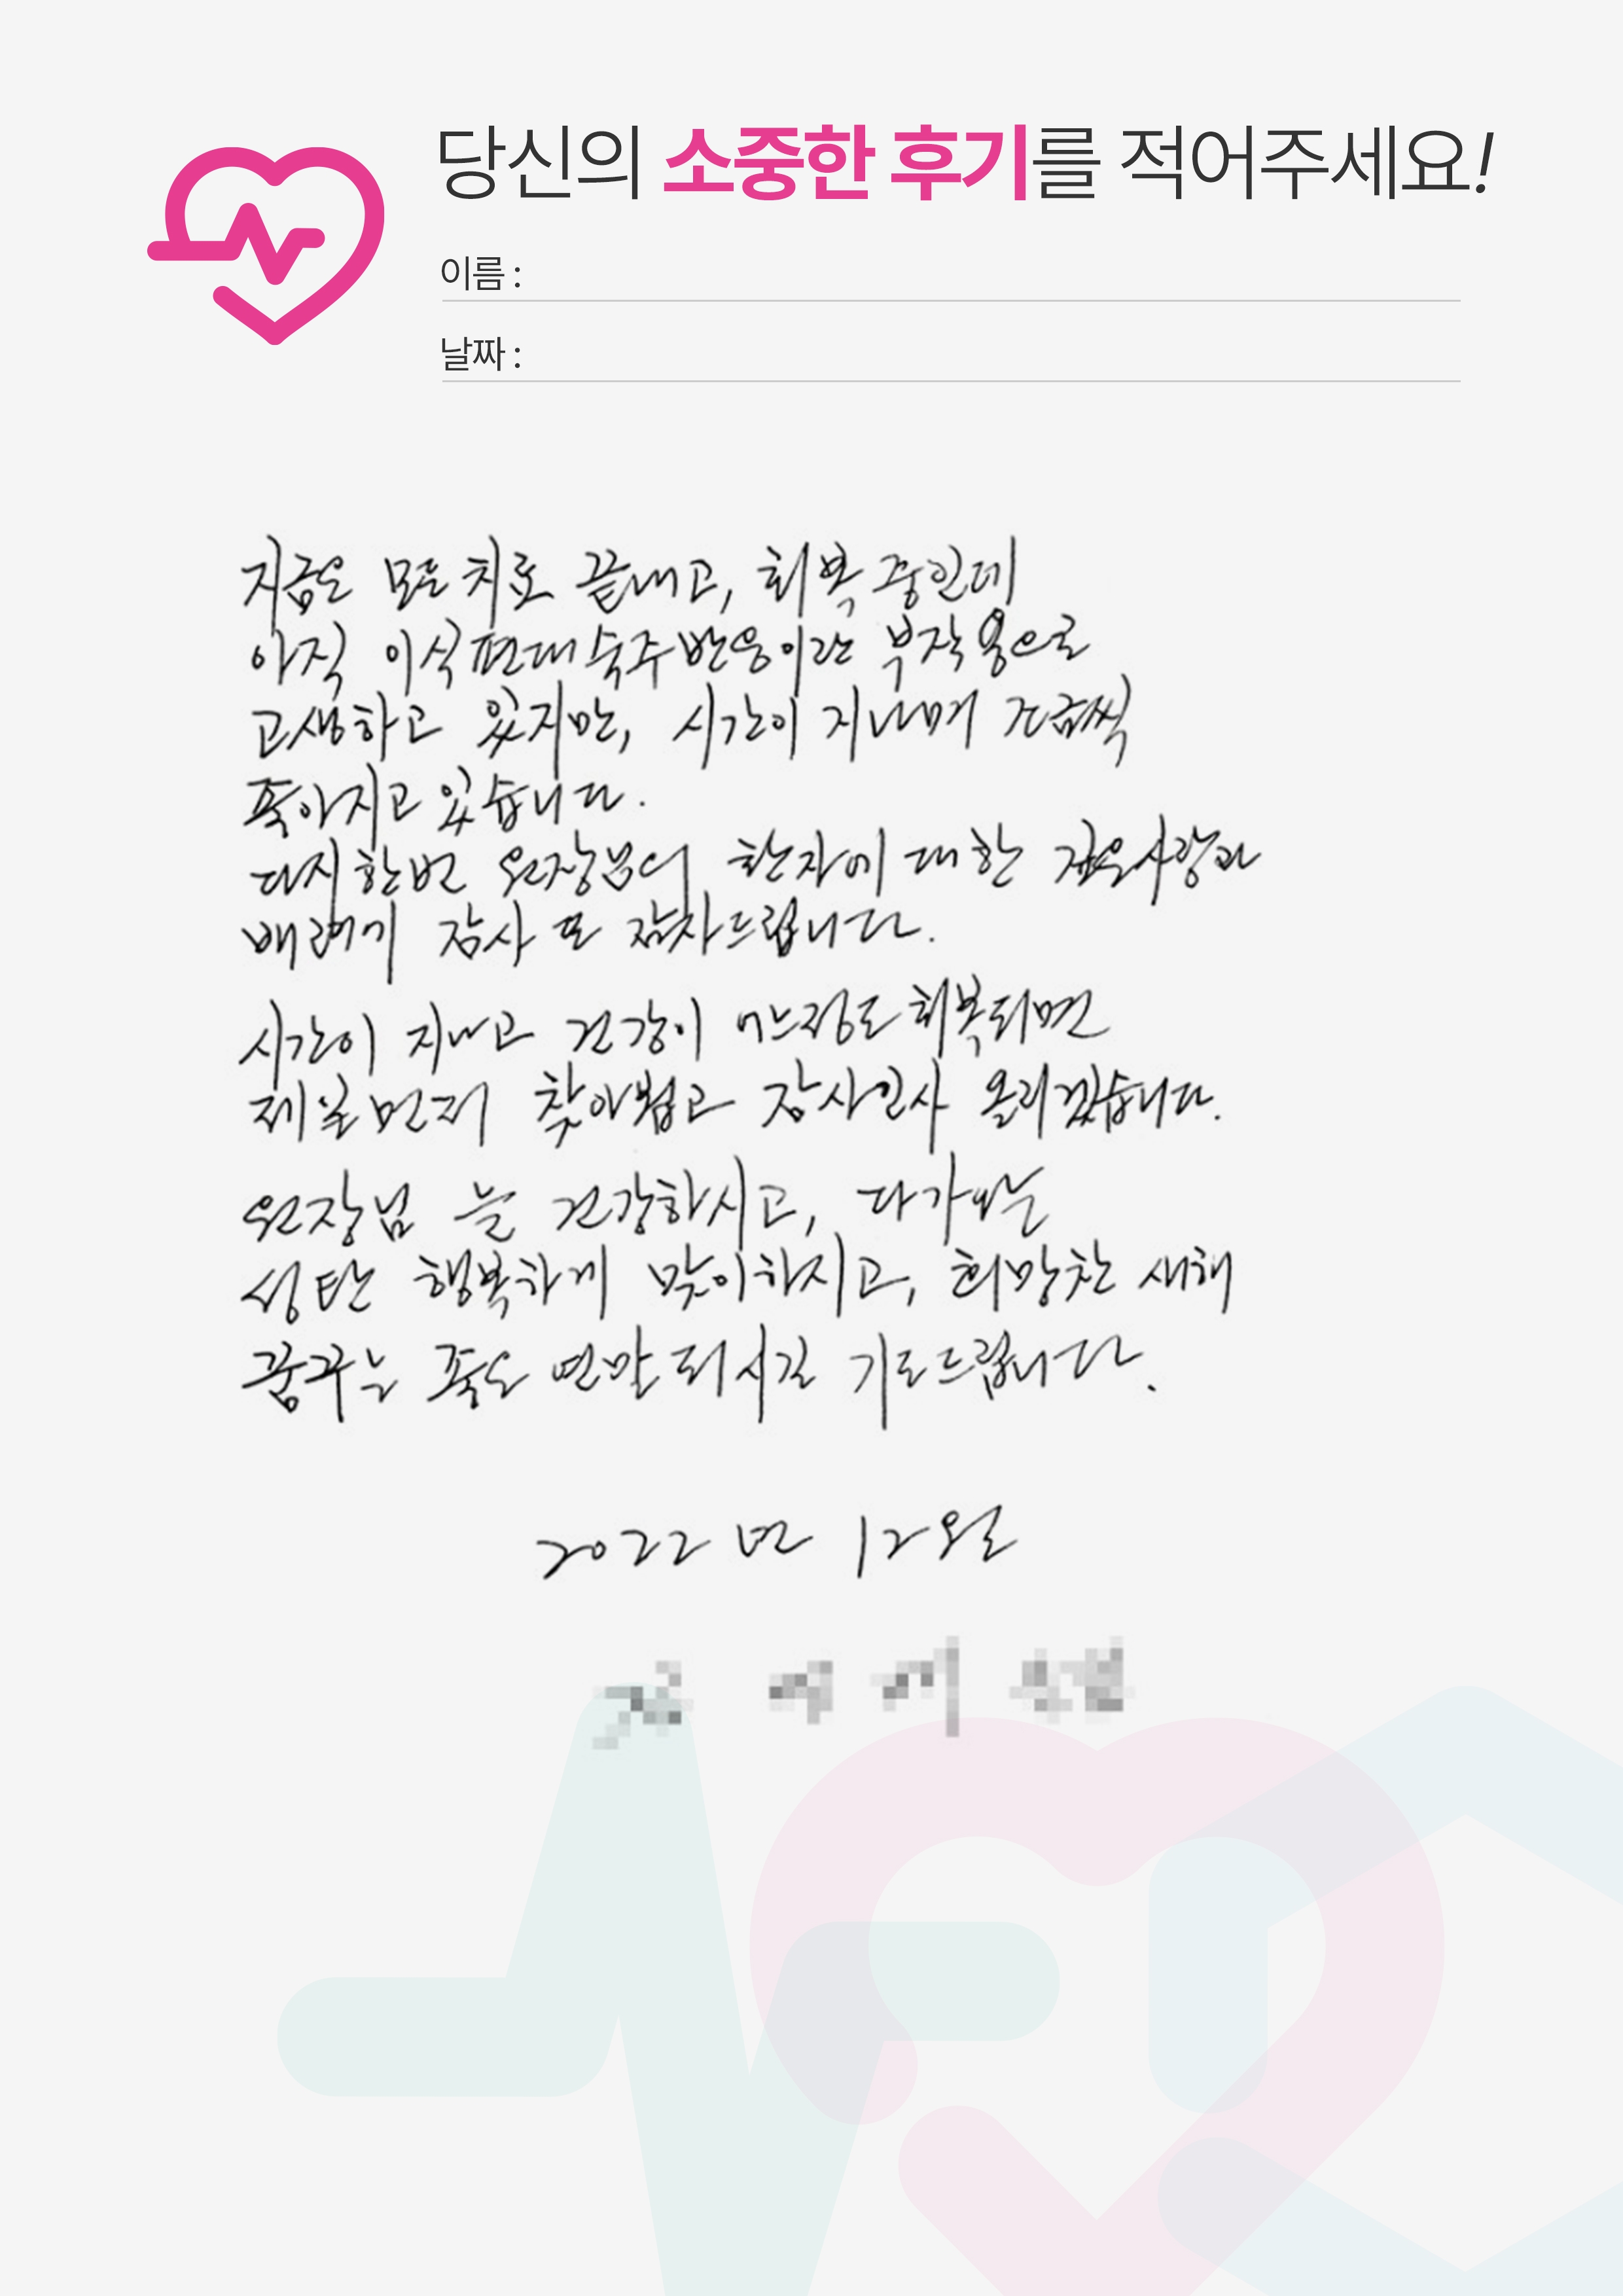 당신의 소중한 후기를 적어주세요!
이름 :
날짜 :
지금은 모든 치료 끝내고, 회복 중인데
아직 이식편대숙주반응이란 부작용으로
고생하고 있지만, 시간이 지나며 조금씩
좋아지고 있습니다.
다시 한번 원장님의 환자에 대한 깊은 사랑과
배려에 감사 또 감사드립니다.
시간이 지나고 건강이 어느정도 회복되면
제일 먼저 찾아뵙고 감사인사 올리겠습니다.
원장님 늘 건강하시고, 다가오는
성탄 행복하게 맞이하시고, 희망찬 새해
꿈꾸는 좋은 연말 되시길 기도드립니다.
2022년 12월